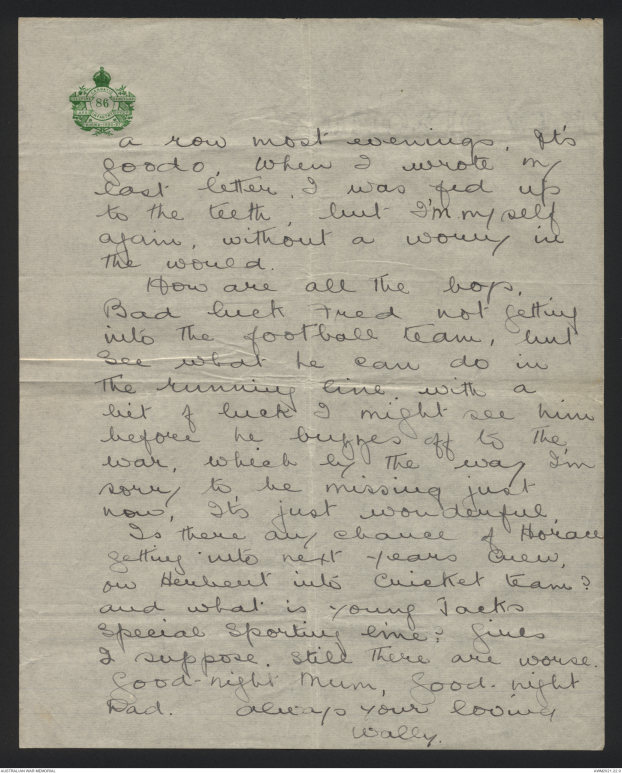 86
a row most evenings. It's
goodo. When I wrote my
last letter, I was fed up
to the teeth, but I'm myself
again, without a worry in
the world.
How are all the boys.
Bad luck Fred not getting
into the football team, but
see what he can do in
the running line. with a
bit of luck I might see him
before he buzzes off to the
war, which by the way I'm
sorry to be missing just
now, It's just wonderful.
Is there any chance of Horace
getting into next years Crew,
or Herbert into Cricket team?
and what is young Jacks
special sporting line? Girls
I suppose. Still there are worse.
Good-night Mum, Good-night
Dad. always your loving
Wally.
AUSTRALIAN WAR MEMORIAL